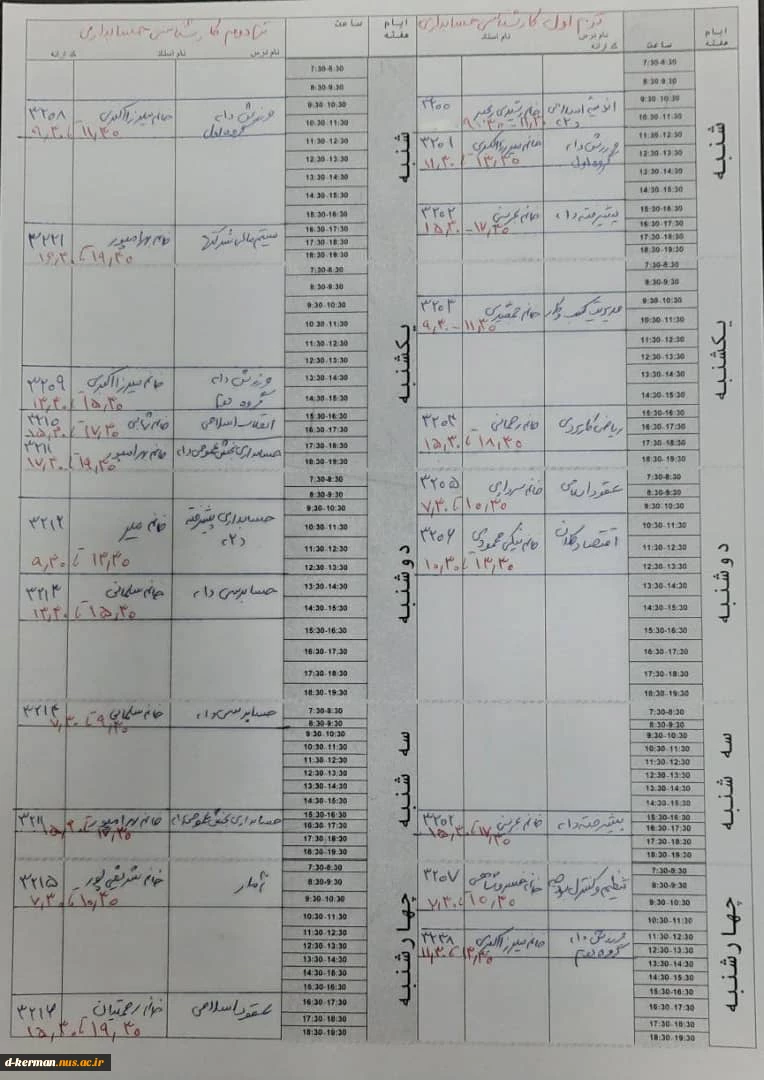 ترم اول کارشناسی حسابداری
ایام هفته
ساعت
نام درس
نام استاد
کد ارائه
شنبه
7:30-8:30
8:30-9:30
9:30-10:30
10:30-11:30
11:30-12:30
12:30-13:30
13:30-14:30
14:30-15:30
15:30-16:30
16:30-17:30
17:30-18:30
18:30-19:30
اندیشه اسلامی «۲»
۳۲۰۰
۹,۳۰ - ۱۱,۳۰
ورزش «۱» گروه اول
خانم میرزااکبری
۳۲۰۱
۱۱,۳۰ تا ۱۳,۳۰
پیشرفته «۱»
خانم عربی
۳۲۰۲
۱۵,۳۰ - ۱۷,۳۰
یکشنبه
7:30-8:30
8:30-9:30
9:30-10:30
10:30-11:30
11:30-12:30
12:30-13:30
13:30-14:30
14:30-15:30
15:30-16:30
16:30-17:30
17:30-18:30
18:30-19:30
مدیریت کسب و کار
خانم جمشیدی
۳۲۰۳
۹,۳۰ - ۱۱,۳۰
ریاضی کاربردی
خانم رحمانی
۳۲۰۴
۱۵,۳۰ تا ۱۸,۳۰
دوشنبه
7:30-8:30
8:30-9:30
9:30-10:30
10:30-11:30
11:30-12:30
12:30-13:30
13:30-14:30
14:30-15:30
15:30-16:30
16:30-17:30
17:30-18:30
18:30-19:30
عقود اسلامی
۳۲۰۵
۷,۳۰ تا ۱۰,۳۰
اقتصاد کلان
خانم نیکی محمودی
۳۲۰۶
۱۰,۳۰ تا ۱۳,۳۰
سه شنبه
7:30-8:30
8:30-9:30
9:30-10:30
10:30-11:30
11:30-12:30
12:30-13:30
13:30-14:30
14:30-15:30
15:30-16:30
16:30-17:30
17:30-18:30
18:30-19:30
پیشرفته «۱»
خانم عربی
۳۲۰۲
۱۵,۳۰ تا ۱۷,۳۰
چهارشنبه
7:30-8:30
8:30-9:30
9:30-10:30
10:30-11:30
11:30-12:30
12:30-13:30
13:30-14:30
14:30-15:30
15:30-16:30
16:30-17:30
17:30-18:30
18:30-19:30
تنظیم و کنترل بودجه
خانم خسروشاهی
۳۲۰۷
۷,۳۰ تا ۱۰,۳۰
ورزش «۱» گروه دوم
خانم میرزااکبری
۱۱,۳۰ تا ۱۳,۳۰
ترم دوم کارشناسی حسابداری
ایام هفته
ساعت
نام درس
نام استاد
کد ارائه
شنبه
7:30-8:30
8:30-9:30
9:30-10:30
10:30-11:30
11:30-12:30
12:30-13:30
13:30-14:30
14:30-15:30
15:30-16:30
16:30-17:30
17:30-18:30
18:30-19:30
ورزش «۱» گروه اول
خانم میرزااکبری
۳۲۰۸
۹,۳۰ تا ۱۱,۳۰
سیستم مالی شرکتها
خانم بهرامپور
۳۲۲۱
۱۶,۳۰ تا ۱۹,۳۰
یکشنبه
7:30-8:30
8:30-9:30
9:30-10:30
10:30-11:30
11:30-12:30
12:30-13:30
13:30-14:30
14:30-15:30
15:30-16:30
16:30-17:30
17:30-18:30
18:30-19:30
ورزش «۱» گروه دوم
خانم میرزااکبری
۳۲۰۹
۱۳,۳۰ تا ۱۵,۳۰
انقلاب اسلامی
۳۲۱۰
۱۵,۳۰ تا ۱۷,۳۰
حسابداری بخش عمومی «۱»
خانم بهرامپور
۳۲۱۱
۱۷,۳۰ تا ۱۹,۳۰
دوشنبه
7:30-8:30
8:30-9:30
9:30-10:30
10:30-11:30
11:30-12:30
12:30-13:30
13:30-14:30
14:30-15:30
15:30-16:30
16:30-17:30
17:30-18:30
18:30-19:30
حسابداری پیشرفته «۲»
خانم میر
۳۲۱۲
۹,۳۰ تا ۱۳,۳۰
حسابرسی «۱»
خانم سلمانی
۳۲۱۴
۱۳,۳۰ تا ۱۵,۳۰
سه شنبه
7:30-8:30
8:30-9:30
9:30-10:30
10:30-11:30
11:30-12:30
12:30-13:30
13:30-14:30
14:30-15:30
15:30-16:30
16:30-17:30
17:30-18:30
18:30-19:30
حسابرسی «۱»
خانم سلمانی
۳۲۱۴
۷,۳۰ تا ۹,۳۰
حسابداری بخش عمومی «۱»
خانم بهرامپور
۳۲۱۱
۱۵,۳۰ تا ۱۷,۳۰
چهارشنبه
7:30-8:30
8:30-9:30
9:30-10:30
10:30-11:30
11:30-12:30
12:30-13:30
13:30-14:30
14:30-15:30
15:30-16:30
16:30-17:30
17:30-18:30
18:30-19:30
آمار
خانم شریفی پور
۳۲۱۵
۷,۳۰ تا ۱۰,۳۰
عقود اسلامی
خانم رحمتیان
۳۲۱۶
۱۵,۳۰ تا ۱۹,۳۰
d-kerman.nus.ac.ir